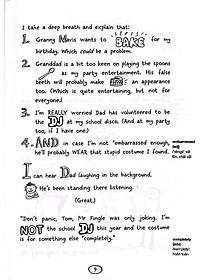 I take a deep breath and explain that:
1. Granny Mavis wants to BAKE for my
birthday. Which could be a problem.
2. Granddad is a bit too keen on playing the spoons
as my party entertainment. His false
teeth will probably make an appearance
too. (Which is quite entertaining, but not for
everyone.)
3. I'm REALLY worried Dad has volunteered to be
the DJ at my school disco. (And at my party
too, if I have one.)
4. AND in case I'm not "embarrassed enough,
he'll probably WEAR that stupid costume I found.
I can hear Dad laughing in the background.
He's been standing there listening.
(Great.)
"Don't panic, Tom, Mr Fingle was only joking. I'm
NOT the school DJ this year and the costume
is for something else "completely."
embarrassed
(adj)
completely
(adv)
hoàn toàn
9